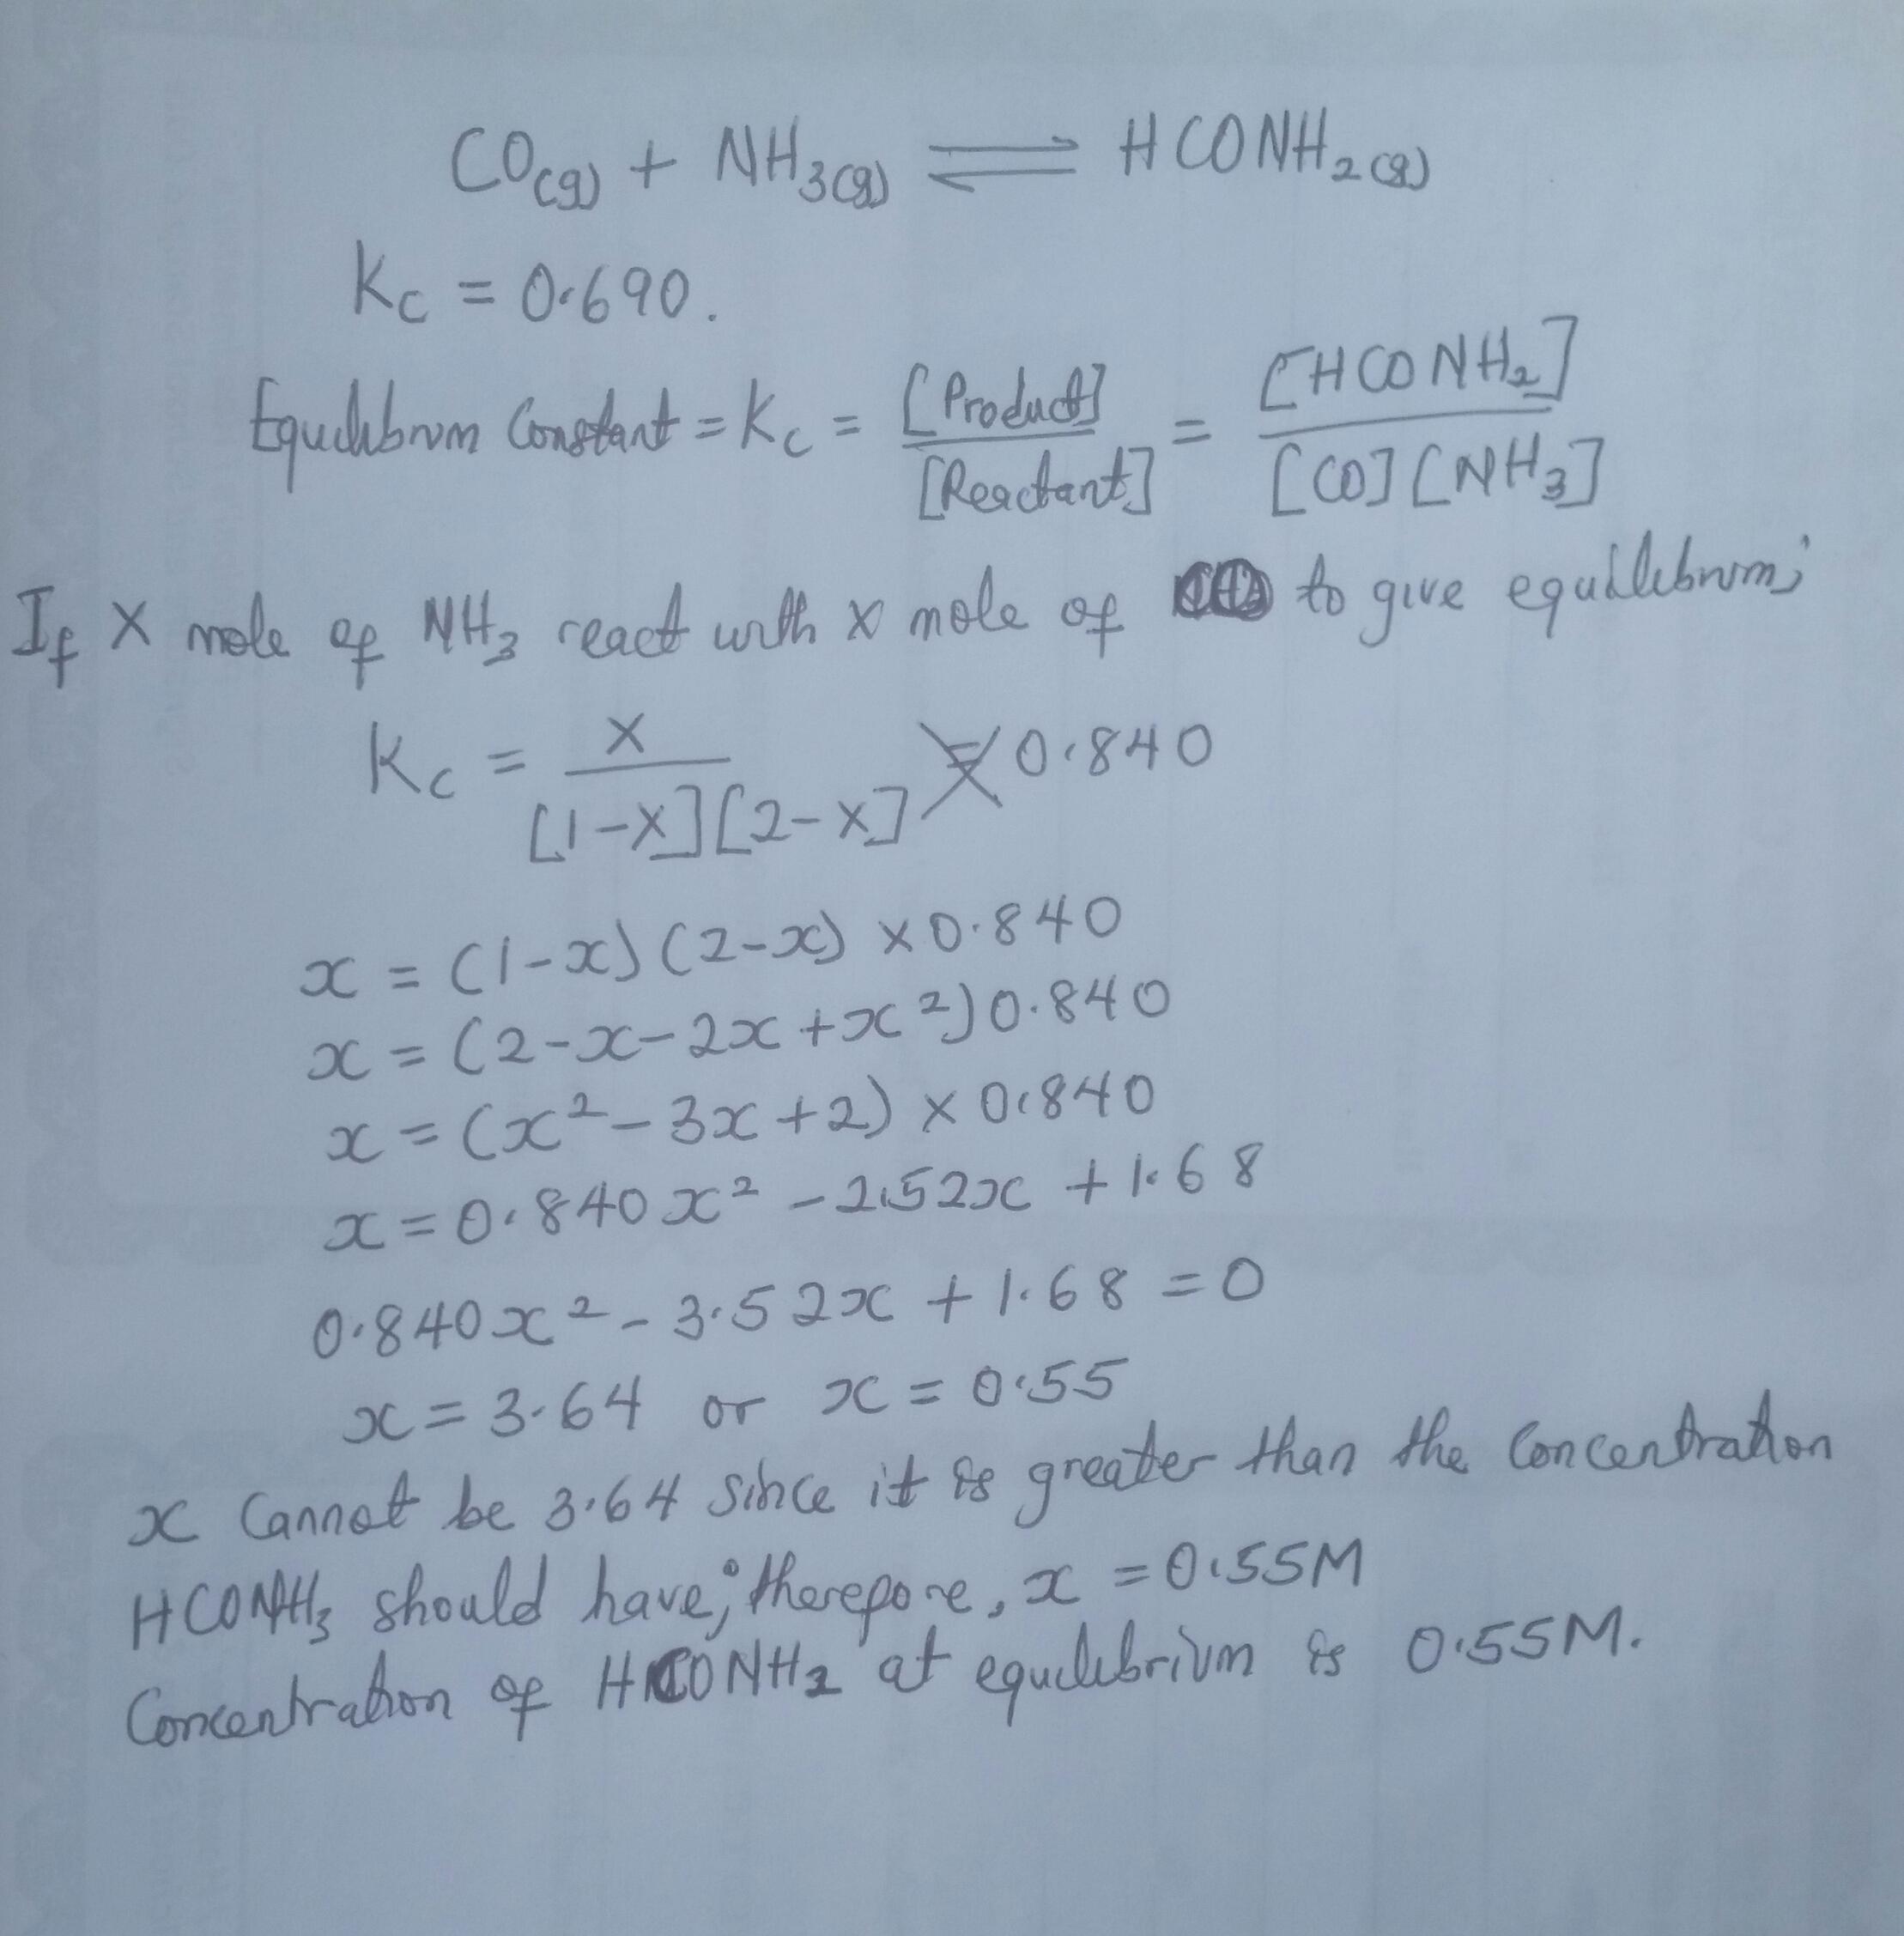 CO(g) + NH3(g) ⇌ HCONH2(g)
Kc = 0.690.
Equilibrum Constant = Kc = [Product]/[Reactant] = [HCONH2]/[CO][NH3]
If X mole of NH3 react with x mole of to give equilibrum;
Kc = X/[1-X][2-X] = 0.840
x = (1-x)(2-x) × 0.840
x = (2-x-2x+x²)0.840
x = (x²-3x+2) × 0.840
x = 0.840x² - 2.52x + 1.68
0.840x² - 3.52x + 1.68 = 0
x = 3.64 or x = 0.55
x Cannot be 3.64 since it is greater than the Concentration
HCONH3 should have; therefore, x = 0.55M
Concentration of HCONH2 at equilibrium is 0.55M.